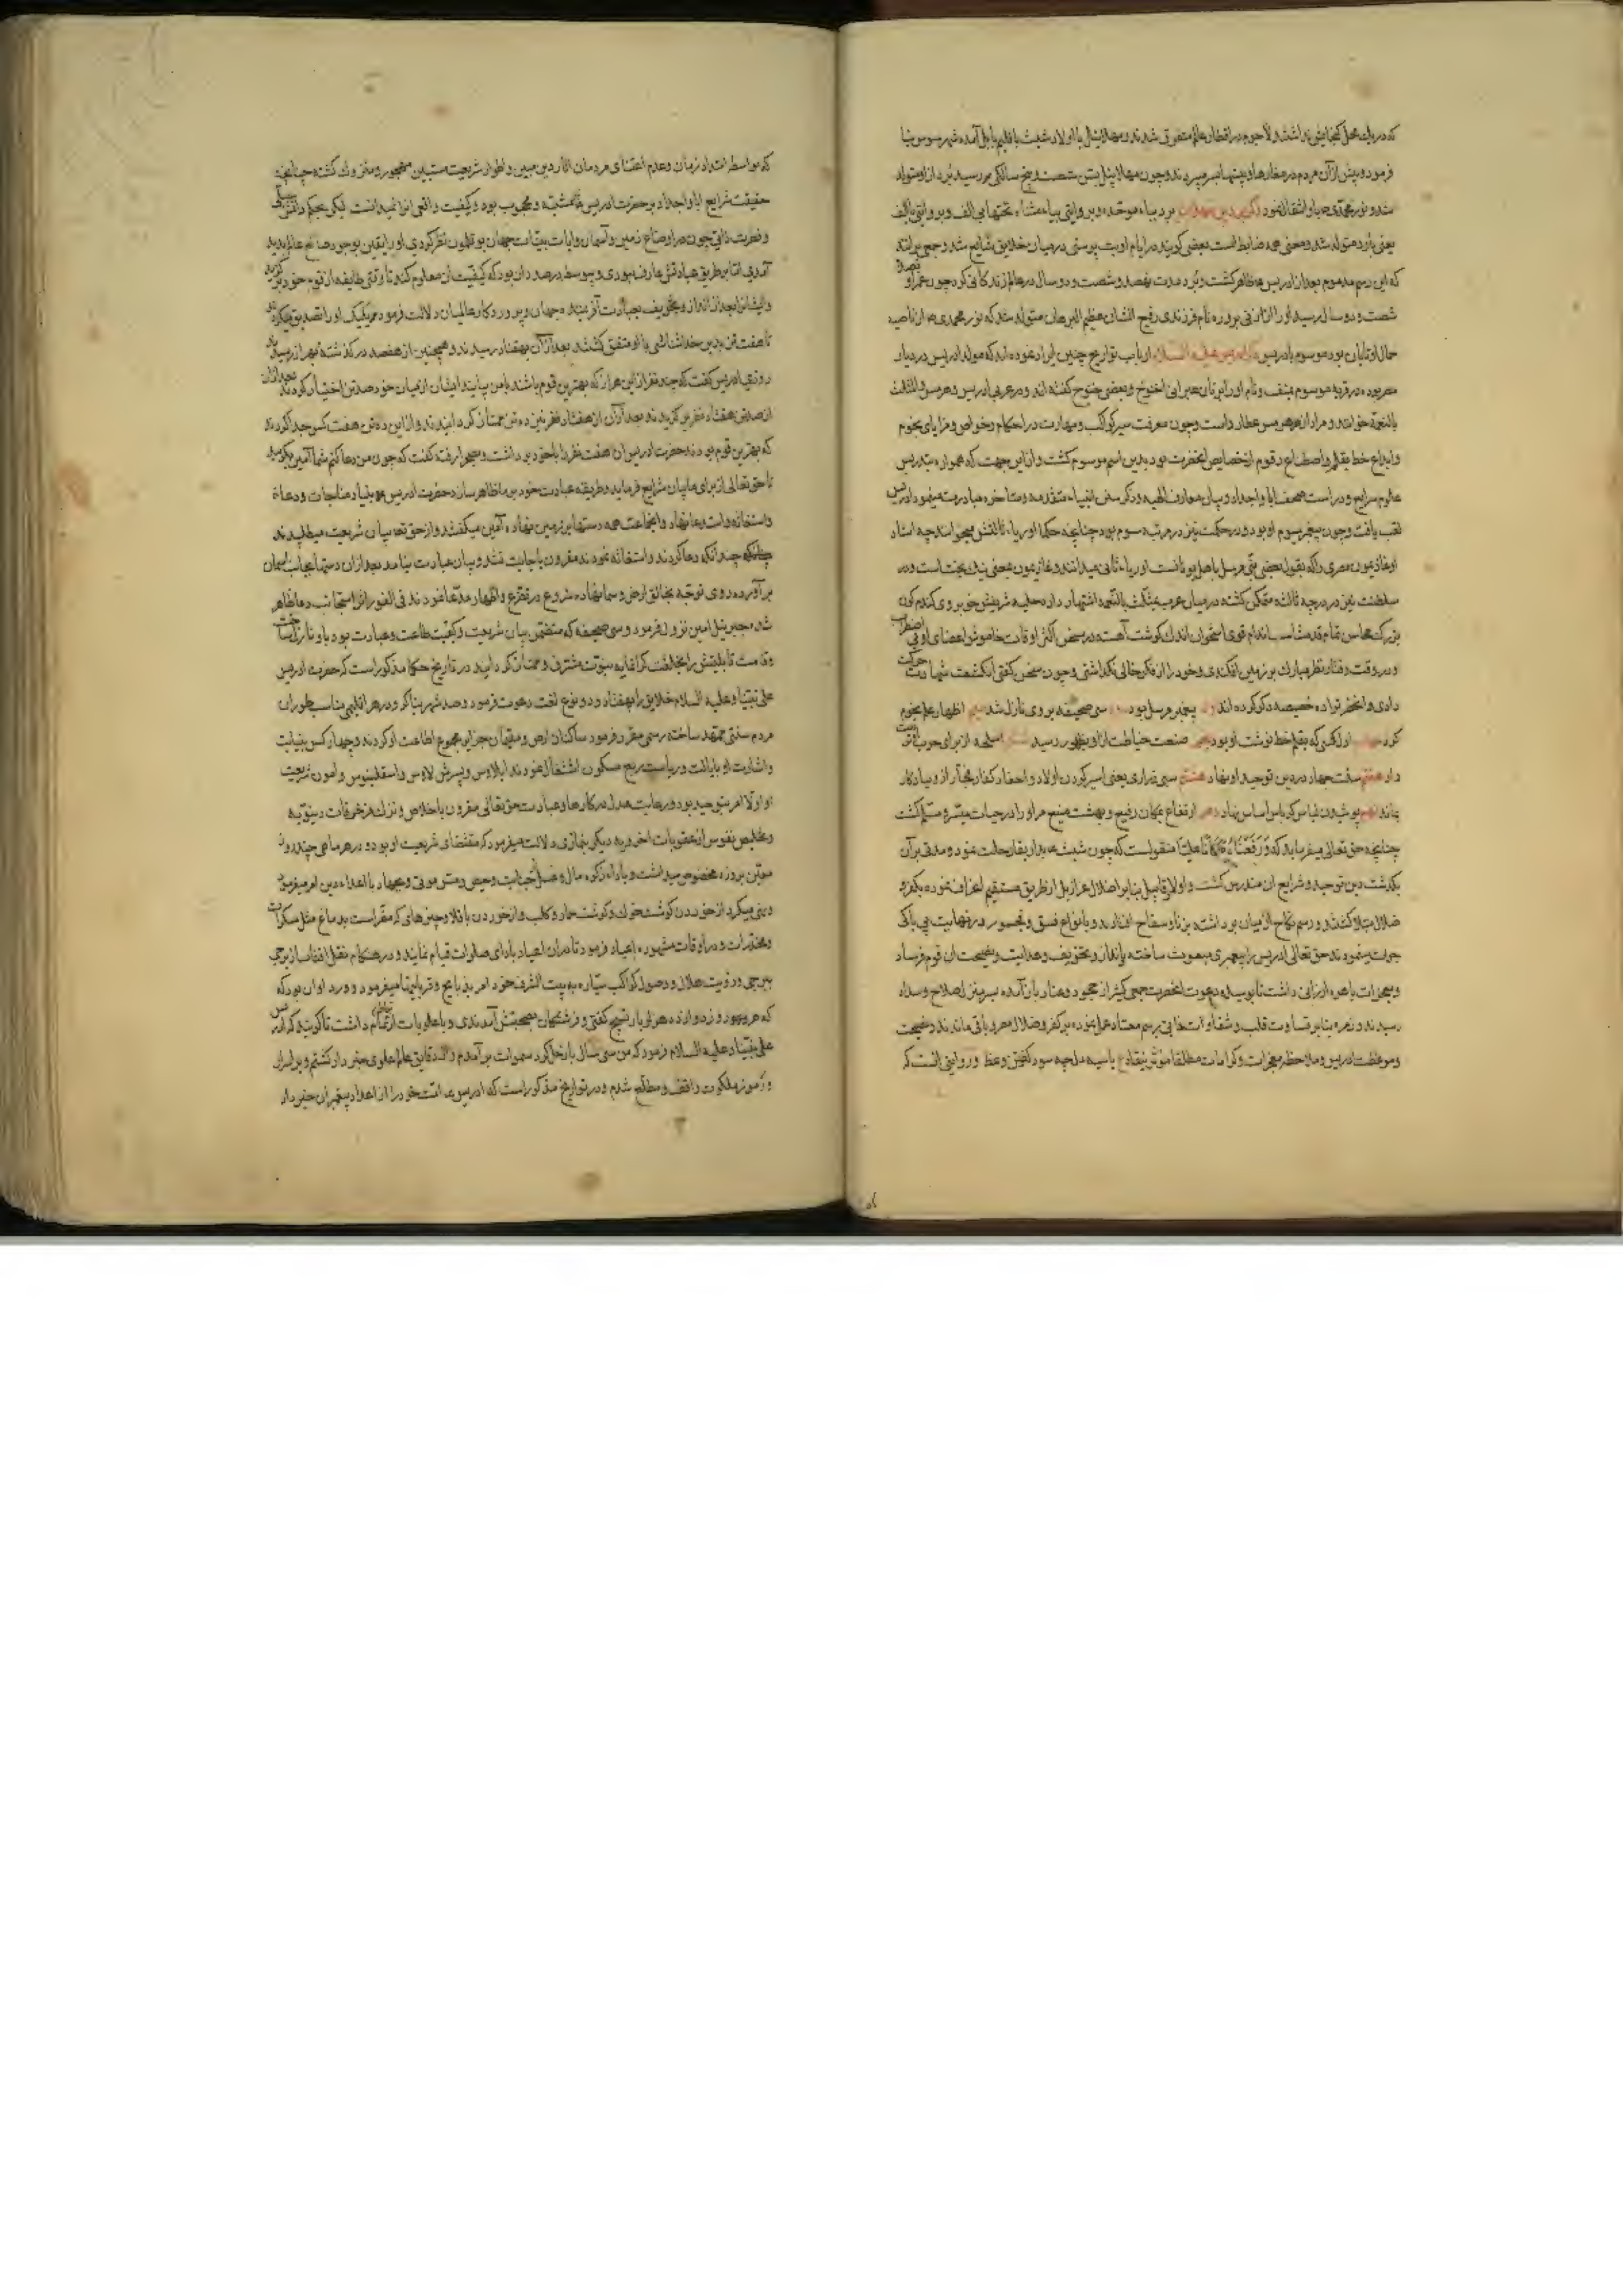 که در یک محل کنجایش نداشتند و لاجرم در اقطار عالم متفرق شدند و مهلائیل با اولاد شیث باقلیم بابل آمده شهر سوس بنا
فرمود و پیش از آن مردم در مغارها و بیشها بسر میبردند و چون مهلائیل بسن شصت و پنج سالکی رسید یرد از او متولد
شد و نور محمدی باو انتقال نمود یرد بباء موحده و بروایتی بیاء مثناه تحتها بی الف و بروایتی بالف
یعنی یارد متولد شد و معنی ضابط است بعضی کویند در ایام او بت پرستی در میان خلایق شایع شد و جمعی برانند
که این رسم مذموم بعد از ادریس ظاهر کشت و یرد مدت نهصد و شصت و دو سال در عالم زندکانی کرد چون عمر او
شصت و دو سال رسید او را از زنی بروره نام فرزندی رفیع الشان عظیم البرهان متولد شد که نور محمدی از ناصیه
حال او تابان بود موسوم بادریس ارباب تواریخ چنین ایراد نموده اند که مولد ادریس در دیار
مصر بوده در قریه موسوم بمنف و نام او را بزبان عبرانی اخنوخ و بعضی خنوخ کفته اند و در عربی ادریس و هرمس و المثلث
بالنعمة خوانند و مراد از هرمس عطارد است و چون معرفت سیر کواکب و مهارت در احکام و خواص و مزایای نجوم
و ابداع خط بقلم و رقوم از خصایص آنحضرت بود بدین اسم موسوم کشت و از این جهت که همواره بتدریس
علوم شرایع و دراست صحف ابا و اجداد و بیان معارف الهیه و ذکر سنن انبیاء متقدمه و متاخره مبادرت مینمود ادریس
لقب یافت و چون پیغمبر سوم او بود و در حکمت نیز در مرتبه سوم بود چنانچه حکما اوریاء ثالثش میخوانند چه استاد
او غاذیمون مصری را که بقول بعضی نبی مرسل باهل یونانست اوریاء ثانی میدانند و غاذیمون بمعنی نیک بختست و در
سلطنت نیز در درجه ثالثه متمکن کشته در میان عرب بمثلث بالنعمه اشتهار دارد حلیه شریفش خوب روی کندم کون
بزرک محاسن تمام قد متناسب اندام قوی استخوان اندک کوشت آهسته در سخن اکثر اوقات خاموش اعضای او بی اضطراب
و در وقت رفتار نظر مبارک بر زمین افکندی و خود را از فکر خالی نکذاشتی و چون سخن کفتی انکشت شهادت حرکت
دادی و آنحضرت را ده خصیصه ذکر کرده اند پیغمبر مرسل بود سی صحیفه بر وی نازل شد اظهار علم نجوم
کرد اول کسی که بقلم خط نوشت او بود صنعت خیاطت از او بظهور رسید اسلحه از برای حرب
داد هفتم سنت جهاد در دین توحید او نهاد هشتم سبی ذراری یعنی اسیر کردن اولاد و احفاد کفار فجار از او یادکار
بماند پوشیدن لباس کرباس اساس نهاد ارتفاع بمکان رفیع و بهشت منیع مر او را در حیات میسر و مسلم کشت
چنانچه حق تعالی میفرماید که وَرَفَعْنَاهُ مَكَانًا عَلِيًّا منقولست که چون شیث بدار بقا رحلت نمود و مدتی بر آن
بکذشت دین توحید و شرایع آن مندرس کشت و اولاد قابیل بنابر اضلال عزازیل از طریق مستقیم انحراف نموده بکفر و
ضلال مبتلا کشتند و رسم نکاح از میان برداشته بزنا و سفاح افتادند و بانواع فسق و فجور در نهایت بی باکی
جرات مینمودند حق تعالی ادریس را پیغمبری مبعوث ساخته بانذار و تخویف و هدایت و نصیحت آن قوم فرستاد
و معجزات باهره ارزانی داشت تا بوسیله دعوت آنحضرت جمعی کثیر از جحود و عناد باز آمده بسرمنزل صلاح و سداد
رسیدند و زمره بنابر قساوت قلب و شقاوت ذاتی برسم معتاد عمل نموده بر کفر و ضلال مصر باقی ماندند و نصیحت
و موعظت ادریس و ملاحظه معجزات و کرامات مطلقا مؤثر نیفتاد با سیه دل چه سود کفتن وعظ و روایتی آنست که
که بواسطه امتداد زمان و عدم اعتنای مردمان آثار دین مبین و اطوار شریعت مستبین مهجور و متروک کشته چنانچه
حقیقت شرایع ابا و اجداد بر حضرت ادریس مشتبه و محجوب بود و کیفیت واقعی آنرا نمیدانست لیکن بحکم دانش
و فطرت ذاتی چون در اوضاع زمین و آسمان و آیات بینات جهان بوقلمون نظر کردی او را یقین بوجود صانع عالم پدید
آمدی اما بر طریق عبادتش عارف نبودی و پیوسته در صدد آن بود که کیفیت آن معلوم کند تا وقتی طایفه از قوم خود
و ایشانرا بعد از انذار و تخویف بعبادت آفریننده جهان و پروردکار عالمیان دلالت فرمود و یک یک او را تصدیق میکردند
تا هفت تن بدین خداشناسی با او متفق کشتند بعد از آن بهفتاد رسیدند و همچنین از هفتصد درکذشته بهزار رسید
روزی ادریس کفت که چند نفر از این هزار که بهترین قوم باشند با من بیایند ایشان از میان خود صد تن اختیار کردند
از صد تن هفتاد نفر برکزیدند بعد از آن از هفتاد نفر نیز ده تن ممتاز کردانیدند و از این ده تن هفت کس جدا کردند
که بهترین قوم بودند حضرت ادریس آن هفت نفر را با خود برداشت و بصحرا رفته کفت که چون من دعا کنم شما آمین بکویید
تا حق تعالی از برای ما بیان شرایع فرماید و طریقه عبادت خود بر ما ظاهر سازد حضرت ادریس بنیاد مناجات و دعاء
و استغاثه نهاد و آنجماعت همه دستها بر زمین نهاده آمین میکفتند و از حق بیان شریعت میطلبیدند
چندانکه دعا کردند و استغاثه نمودند مقرون باجابت نشد و بیان عبادت نیامد بعد از آن دستها بجانب آسمان
برآورده روی توجه بخالق ارض و سما نهاده شروع در تضرع و اظهار مدعا نمودند فی الفور اثر استجابت دعا ظاهر
شد جبرئیل امین نزول فرمود و سی صحیفه که متضمن بیان شریعت و کیفیت طاعت و عبادت بود باو نازل ساخت
و قامت قابلیتش را بخلعت کرانمایه نبوت مشرف و ممتاز کردانید در تاریخ حکما مذکور است که حضرت ادریس
علی نبینا و علیه السلام خلایق را بهفتاد و دو نوع لغت دعوت فرمود و صد شهر بنا کرد و در هر اقلیمی مناسب طور آن
مردم سنتی ممهد ساخته رسمی مقرر فرمود ساکنان ارض و مقیمان جزایر مجموع اطاعت او کردند و چهار کس بنیابت
و اشارت او بایالت و ریاست ربع مسکون اشتغال نمودند ایلاوس و پسرش لاوس و اسقلینوس و امون شریعت
او اولا امر بتوحید بود و رعایت عدل در کارها و عبادت حق تعالی مقرون باخلاص و ترک مزخرفات دنیویه
و تخلیص نفوس از عقوبات اخرویه دیکر بنمازی دلالت میفرمود که مقتضای شریعت او بود و در هر ماهی چند روز
معین بروزه مخصوص میداشت و باداء زکوه مال و غسل جنابت و حیض و مس موتی و بجهاد با اعداء دین امر میفرمود
و نهی میکرد از خوردن کوشت خوک و کوشت حمار و کلب و از خوردن باقلا و چیزهای که مضر است بدماغ مثل مسکرات
و مخدرات و در اوقات مشهوره اعیاد فرمود تا در آن اعیاد بادای صلوات قیام نمایند و در هنکام نقل افتاب از برجی
ببرجی و رؤیت هلال و وصول کواکب سیاره به بیت الشرف خود امر بذبایح و قربانیها میفرمود و ورد او آن بود که
که هر روز دوازده هزار بار تسبیح کفتی و فرشتکان بصحبتش آمدندی داشت تا کویند که ادریس
علی نبینا و علیه السلام فرمود که من سی سال بارخل کرد سموات برآمدم و از دقایق عالم علوی خبردار کشتم و بر اسرار
و رموز ملکوت واقف و مطلع شدم و در تواریخ مذکور است که ادریس امت خود را از اعداد پیغمبران خبر داد